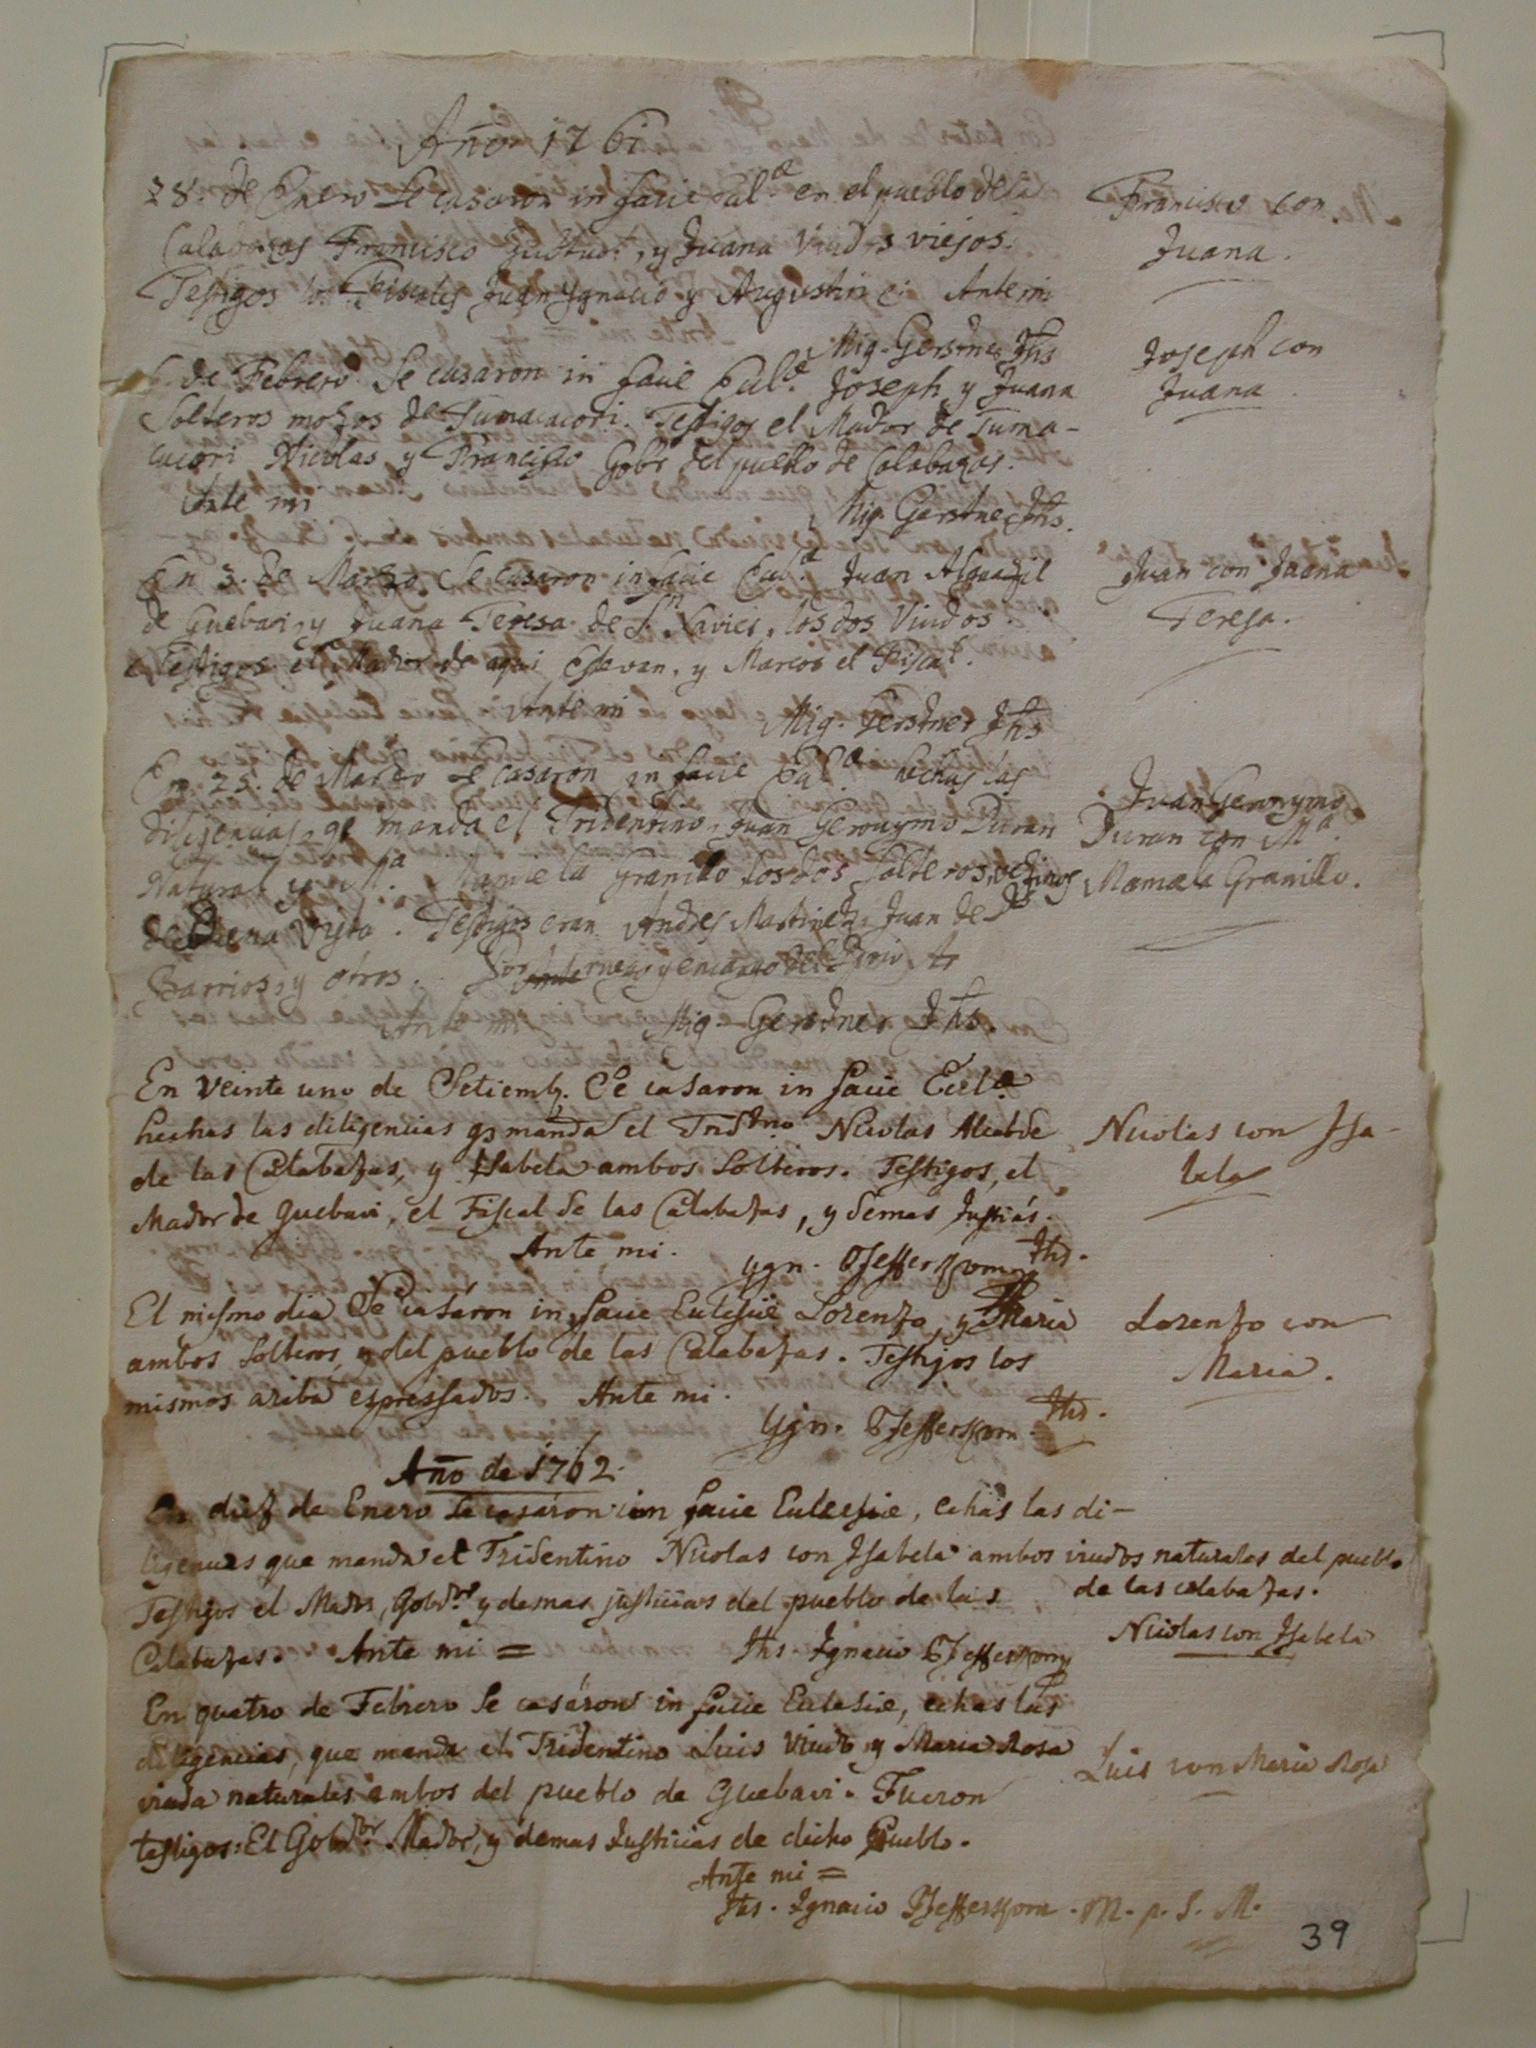 Año 1761
28. de Enero Se casaron in facie Ecclæ en el pueblo de la
Calabazas Francisco , y Juana Viudos viejos.
Testigos los Fiscales Juan Ygnacio y Augustin Ante mi
Mig. Gerstner Jhs
Francisco con
Juana.
de Febrero Se casaron in facie Eclæ. Joseph y Juana
Solteros mozos de Tumacacori. Testigos el Mador de Tuma-
cacori Nicolas y Francisco Gobr del pueblo de Calabazas.
Ante mi Mig. Gerstner Jhs.
Joseph con
Juana
En 3. de Marzo Se casaron in facie Ecclæ Juan Alguazil
de Guebavi, y Juana Teresa de Sn. Xavier, los dos Viudos
Testigos el Mador de aqui Estevan, y Marcos el Fiscal.
Ante mi Mig. Gerstner Jhs
Juan con Juana
Teresa.
En 25. de Marzo se casaron in facie Ecclæ. hechas las
diligencias, qe manda el Tridentino, Juan Geronymo Duran
Natural y Ma. Manuela Granillo los dos Solteros, vezinos
de Buena Vista. Testigos eran Andres Martinez, Juan de Ds
Barrios, y otros. Por ruego y encargo del
Ante mi Mig. Gerstner Jhs.
Juan Geronymo
Duran con Ma.
Manuela Granillo.
En veinte uno de Setiemb. Se casaron in facie Eclæ.
hechas las diligencias qe manda el Tridtno. Nicolas Alcalde
de las Calabazas, y Isabela ambos Solteros. Testigos, el
Mador de Guebavi, el Fiscal de las Calabazas, y demas Justiás.
Ante mi. Ygn. Pfefferkorn Jhs.
Nicolas con Isa-
bela
El mismo dia Se casáron in facie Eclesiæ Lorenzo, y Maria
ambos Solteros, y del pueblo de las Calabazas. Testigos los
mismos ariba espressados. Ante mi.
Ygn. Pfefferkorn. Jhs.
Lorenzo con
Maria.
Año de 1762.
En diez de Enero Se casáron in facie Eclesiæ, echas las di-
ligencias que manda el Tridentino Nicolas con Isabela ambos viudos naturales del pueblo
de las calabazas.
Testigos el Mador, Gobdor y demas justicias del pueblo de las
Calabazas. Ante mi = Jhs. Ignacio Pfefferkorn
Nicolas con Isabela
En quatro de Febrero Se casáron in facie Eclesiæ, echas las
diligencias, que manda el Tridentino Luis Viudo y Maria Rosa
viuda naturales ambos del pueblo de Guebavi. Fueron
testigos: El Gobdor. Mador, y demas Justicias de dicho Pueblo.
Ante mi =
Jhs. Ignacio Pfefferkorn. M. p. S. M.
Luis con Maria Rosa
39